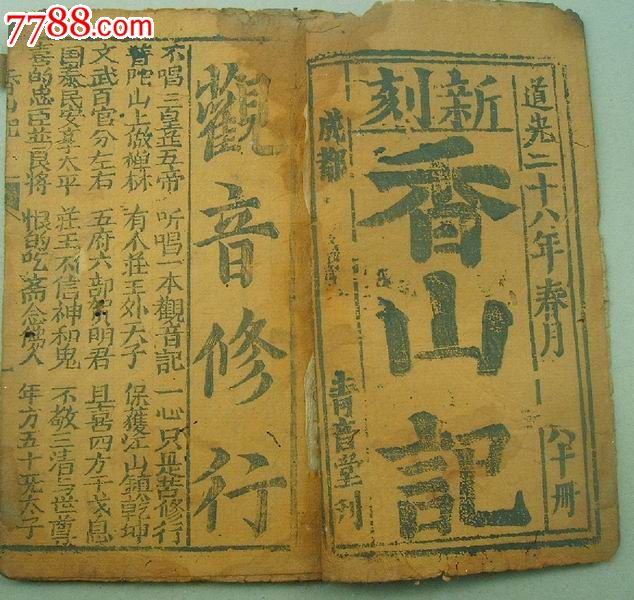 7788.com
中国收藏热线
道光二十八年春月
新刻
香山記
成都
青音堂刊
觀音修行
不唱三皇並五帝 听唱一本觀音記 一心只是苦修行
普陀山上做禅林 有个莊王外太子 保護江山鎮乾坤
文武百官分左右 五府六部 明君 且喜四方干戈息
国泰民安享太平 莊王不信神和鬼 不敬三清与世尊
喜的忠臣並良将 恨的吃斋念佛人 年方五十无太子
香山記